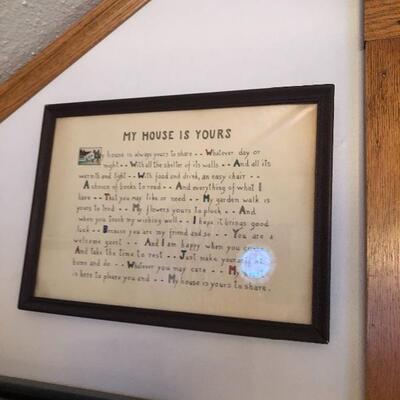 MY HOUSE IS YOURS
My house is always yours to share - - Whatever day or
night - - With all the shelter of its walls - - And all its
warmth and light - - With food and drink, an easy chair - -
A choice of books to read - - And everything of what I
have - - That you may like or need - - My garden walk is
yours to tend - - My flowers yours to pluck - - And
when you touch my wishing well - - I hope it brings good
luck - - Because you are my friend and so - - You are a
welcome guest - - And I am happy when you
And take the time to rest - - Just make yourself at
home and do - - Whatever you may care - - My
is here to please you and - - My house is yours to share.